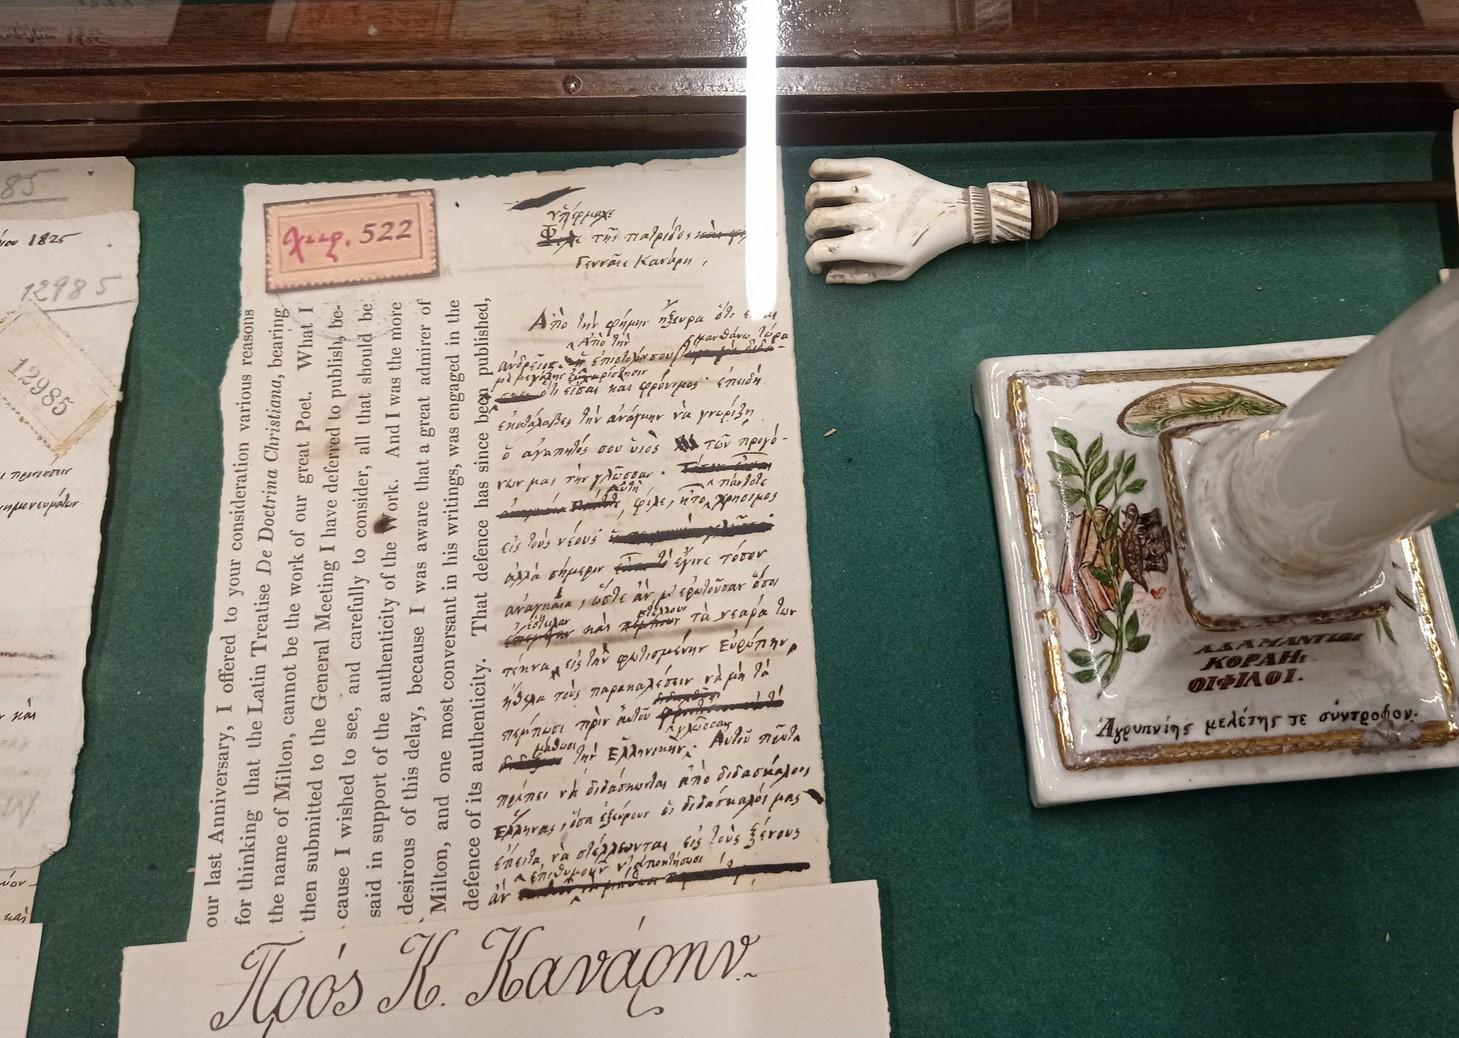 85
1825
12985
12985
χειρ. 522
our last Anniversary, I offered to your consideration various reasons
for thinking that the Latin Treatise De Doctrina Christiana, bearing
the name of Milton, cannot be the work of our great Poet. What I
then submitted to the General Meeting I have deferred to publish, be-
cause I wished to see, and carefully to consider, all that should be
said in support of the authenticity of the Work. And I was the more
desirous of this delay, because I was aware that a great admirer of
Milton, and one most conversant in his writings, was engaged in the
defence of its authenticity. That defence has since been published,
ὑπέρμαχε
τῆς πατρίδος
Γενναῖε Κανάρη,
Ἀπὸ τὴν φήμην ἤξευρα ὅτι
Ἀπὸ τὴν
μανθάνω τώρα
ἐπιστολήν σου
ὅτι εἶσαι καὶ φρόνιμος· ἐπειδὴ
ἐκατάλαβες τὴν ἀνάγκην νὰ γνωρίζῃ
ὁ ἀγαπητός σου υἱὸς τῶν προγό-
νων μας τὴν γλῶσσαν·
πάντοτε
φίλε, ἦτο χρήσιμος
εἰς τοὺς νέους
ἀλλὰ σήμερον ἔγινε τόσον
ἀναγκαία, ὥστε ἂν μ' ἐρωτοῦσαν ὅσοι
ἔστειλαν
στέλλουν
καὶ τὰ νεαρά των
τέκνα εἰς τὴν φωτισμένην Εὐρώπην,
ἤθελα τοὺς παρακαλέσειν νὰ μὴ τὰ
πέμπωσι πρὶν αὐτοῦ
γλῶσσαν
μάθωσι
τὴν Ἑλληνικήν. Αὐτοῦ πρῶτα
πρέπει νὰ διδάσκωνται ἀπὸ διδασκάλους
Ἕλληνας, ὅσα ἐξεύρουν οἱ διδάσκαλοί μας
ἔπειτα νὰ στέλλωνται εἰς τοὺς ξένους
ἐπιθυμοῦν ν' ἀποκτήσωσι
ἂν
Πρός Κ. Κανάρην
ΑΔΑΜΑΝΤΙΩΙ
ΚΟΡΑΗΙ
ΟΙ ΦΙΛΟΙ.
Ἀγρυπνίης μελέτης τε σύντροφον.